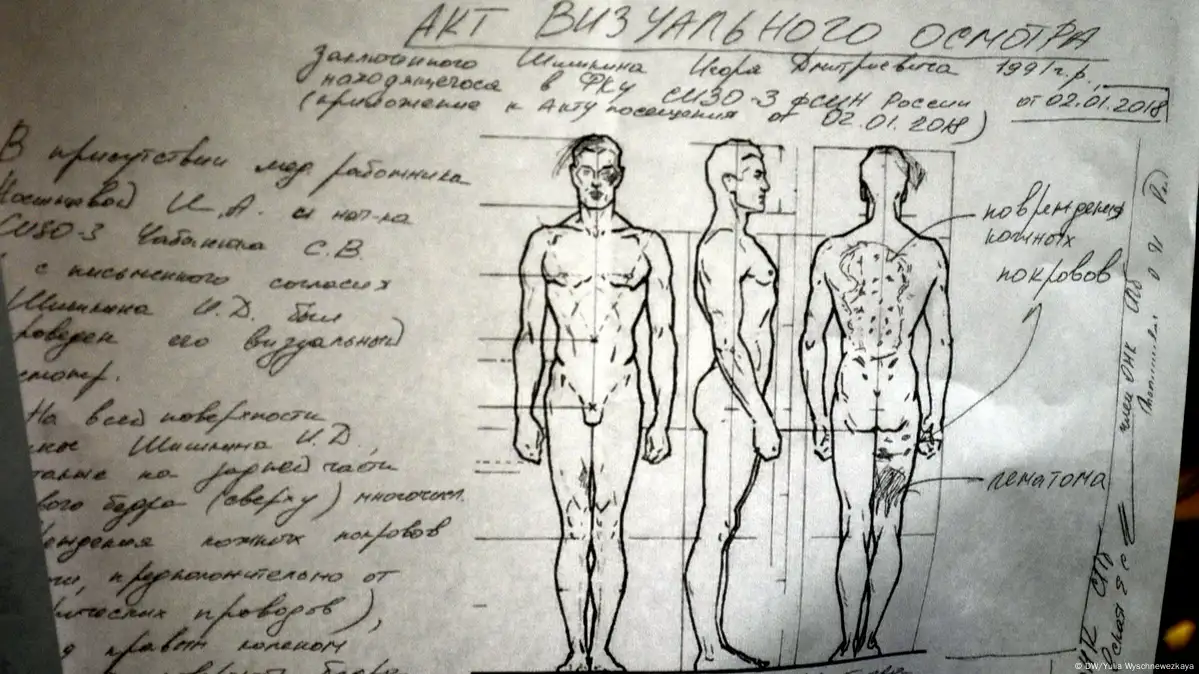 АКТ ВИЗУАЛЬНОГО ОСМОТРА
заключенного Шишкина Игоря Дмитриевича 1991 г.р.,
находящегося в ФКУ СИЗО-3 ФСИН России
(приложение к Акту посещения от 02.01.2018)
от 02.01.2018
В присутствии мед работника
И.А. и нач-ка
СИЗО-3 С.В.
с письменного согласия
Шишкина И.Д. был
роведен его визуальный
смотр.
На всей поверхности
Шишкина И.Д.,
также на задней части
вого бедра (сверху) многочисл.
ждения кожных покровов
предположительно от
ических проводов),
правым коленом
бедра
повреждения
кожных
покровов
гематома
член ОНК СПб
ОНК СПб
© DW/Yulia Wyschnewezkaya